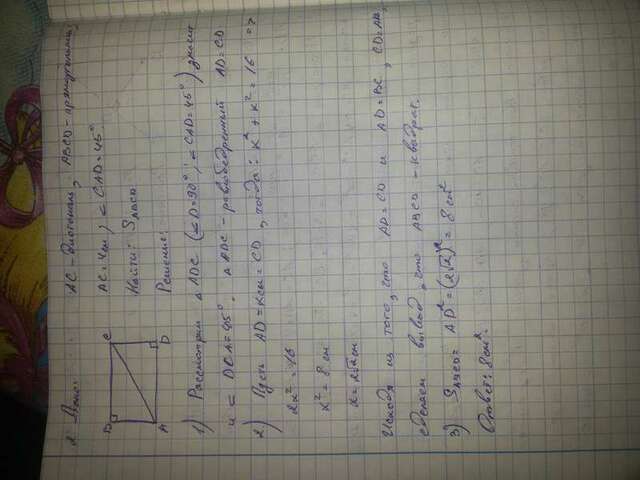 2. Дано:
AC - диагональ, ABCD - прямоугольник,
AC = 4см, ∠CAD = 45°
Найти: SABCD
Решение:
B
C
A
D
1) Рассмотрим △ADC (∠D=90°, ∠CAD=45°) значит
и ∠DCA=45°, △ADC - равнобедренный AD=CD
2) Пусть AD = xсм = CD, тогда: x² + x² = 16 =>
2x² = 16
x² = 8 см
x = 2√2 см
Исходя из того, что AD = CD и AD = BC, CD = AB,
сделаем вывод, что ABCD - квадрат.
3) SABCD = AD² = (2√2)² = 8 см²
Ответ: 8см².